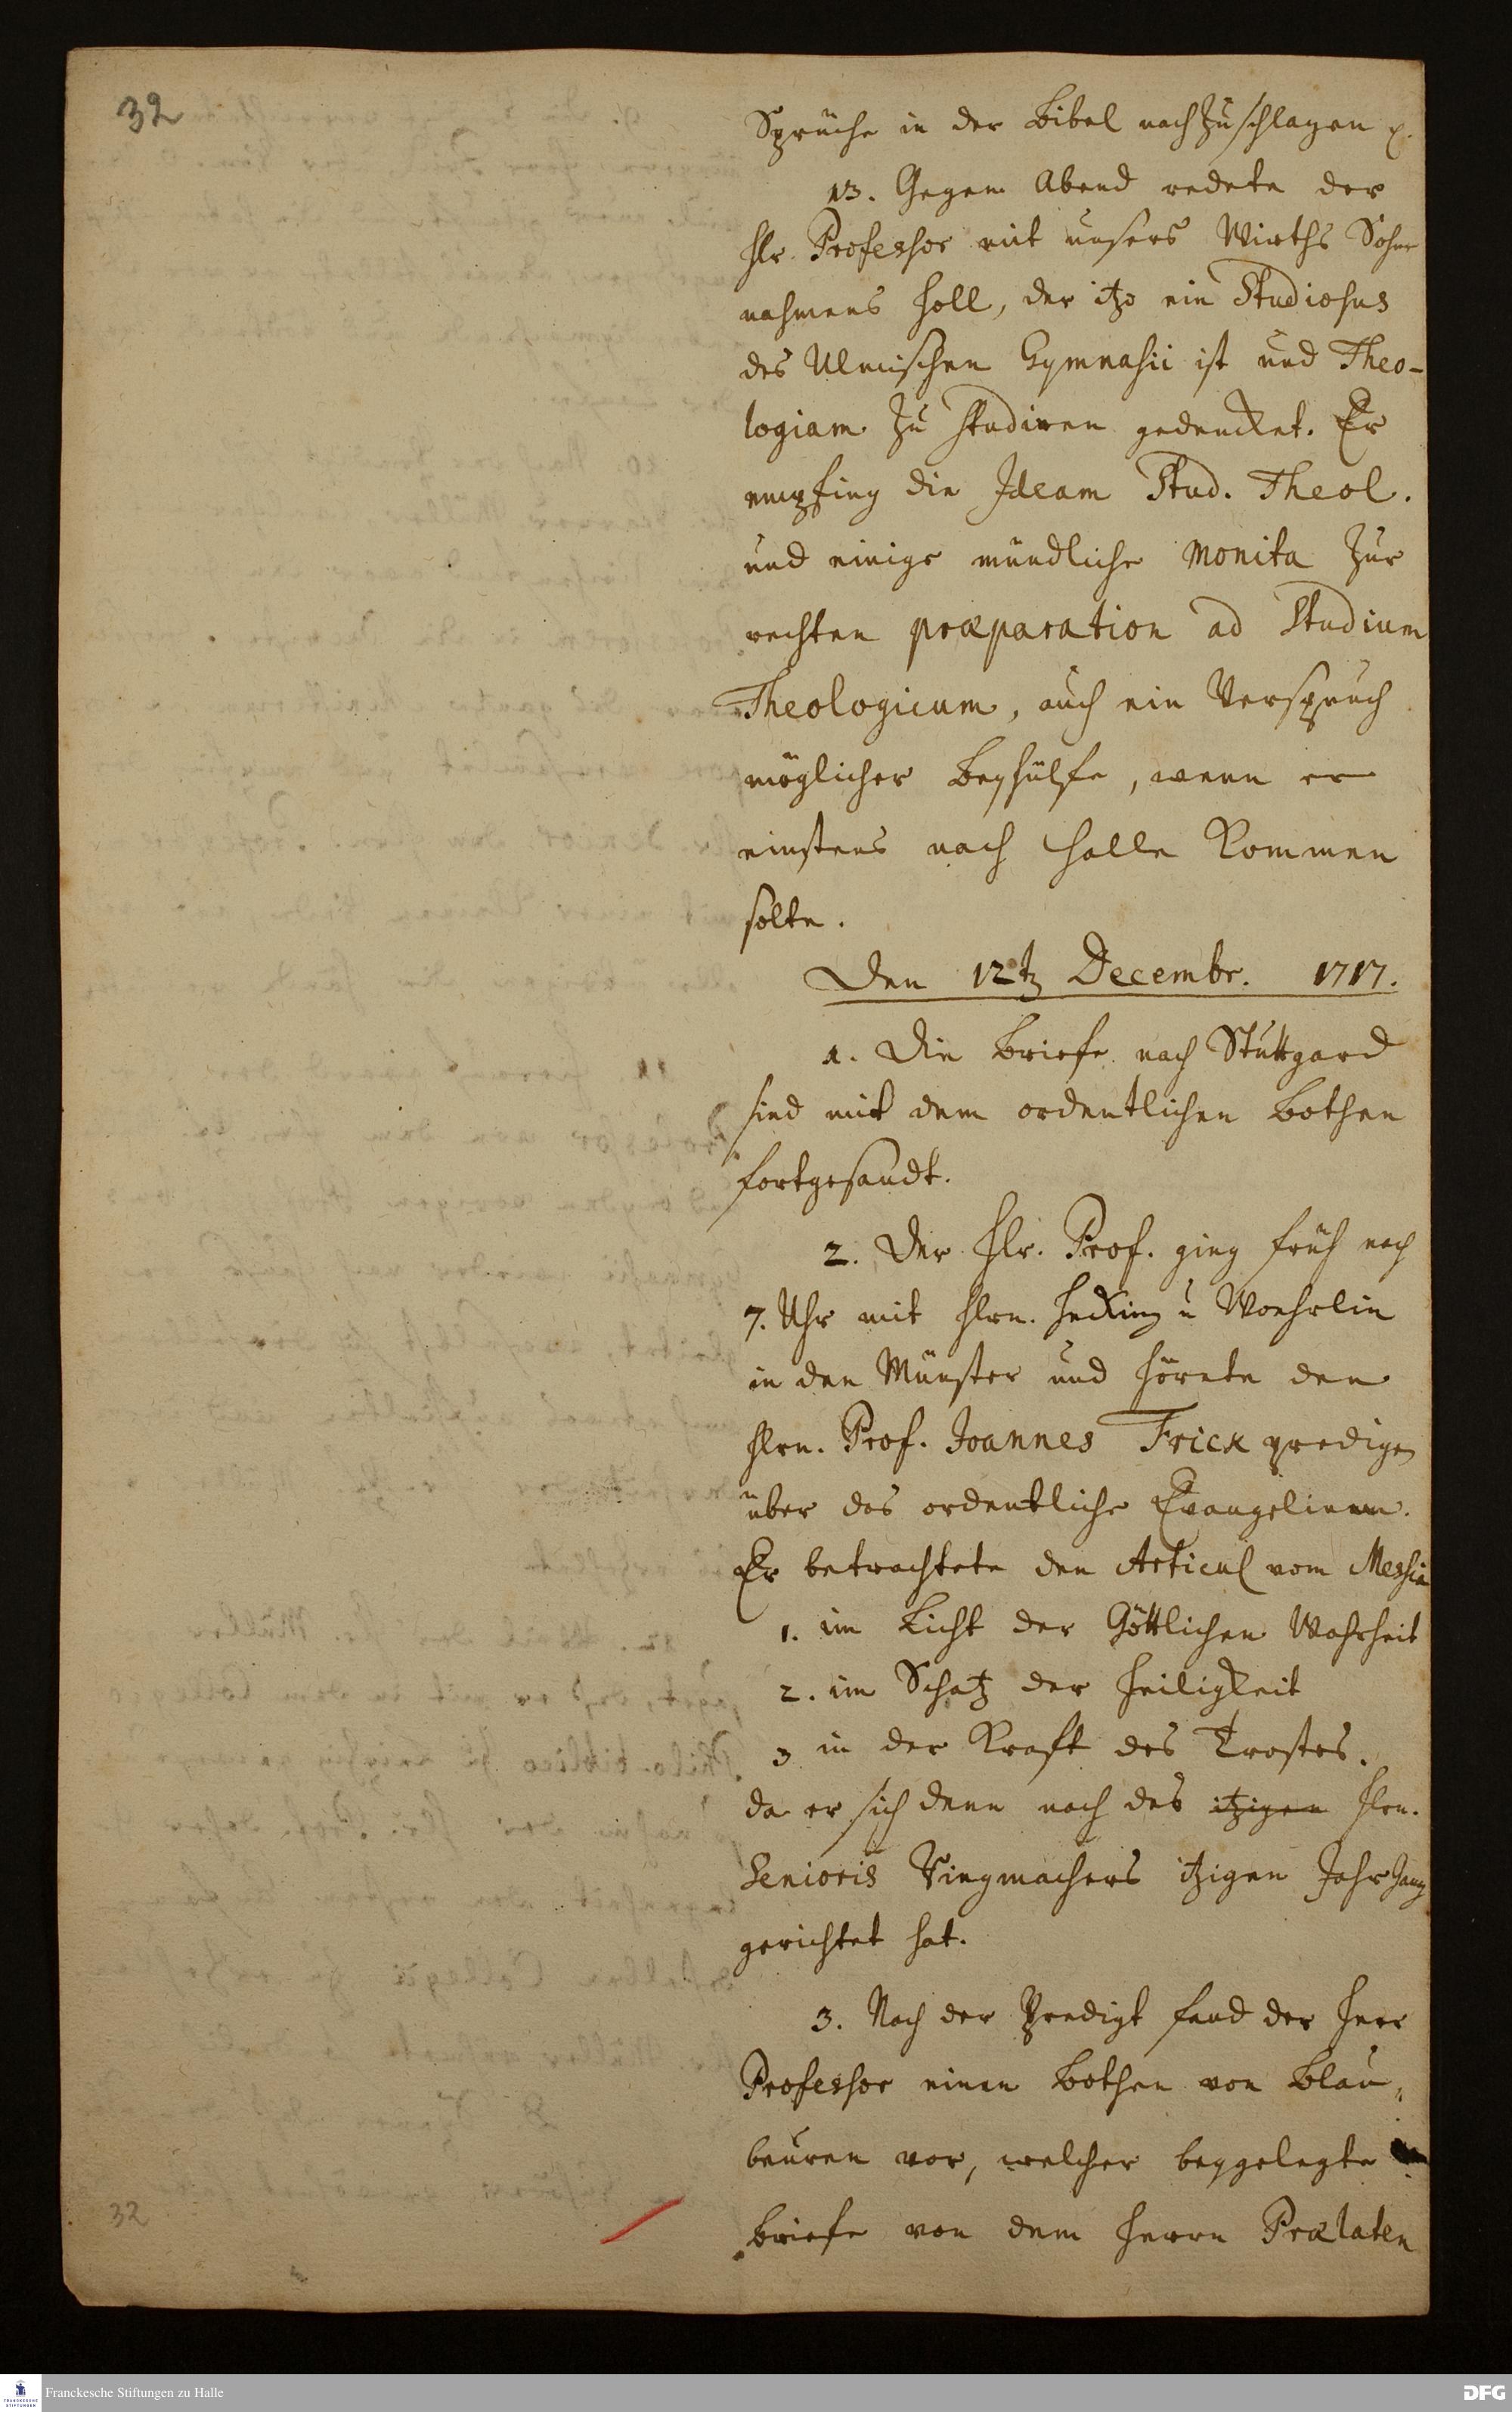 32
Sprüche in der Bibel nachzuschlagen p.
13. Gegen Abend redete der
Hr. Professor mit unsers Wirths Sohn
nahmens Holl, der itzo ein Studiosus
des Ulmischen Gymnasii ist und Theo-
logiam zu studiren gedencket. Er
empfing die Ideam Stud. Theol.
und einige mündliche Monita zur
rechten præparation ad Studium
Theologicum, auch ein Verspruch
möglicher Beyhülfe, wenn er
einstens nach Halle kommen
solte.
Den 12t Decembr. 1717.
1. Die Briefe nach Stuttgard
sind mit dem ordentlichen Bothen
fortgesandt.
2. Der Hr. Prof. ging früh nach
7. Uhr mit Hrn. Hecking u Woehrlin
in den Münster und hörete den
Hrn. Prof. Joannes Frick predigen
über das ordentliche Evangelium.
Er betrachtete den Articul vom Messia
1. im Licht der Göttlichen Wahrheit
2. im Schatz der Heiligkeit
3 in der Kraft des Trostes.
da er sich denn nach des itzigen Hrn.
Senioris Ringmachers itzigen Jahrgang
gerichtet hat.
3. Nach der Predigt fand der Herr
Professor einen Bothen von Blau-
beuren vor, welcher beygelegte
Briefe von dem Herrn Prælaten
32
Franckesche Stiftungen zu Halle
DFG